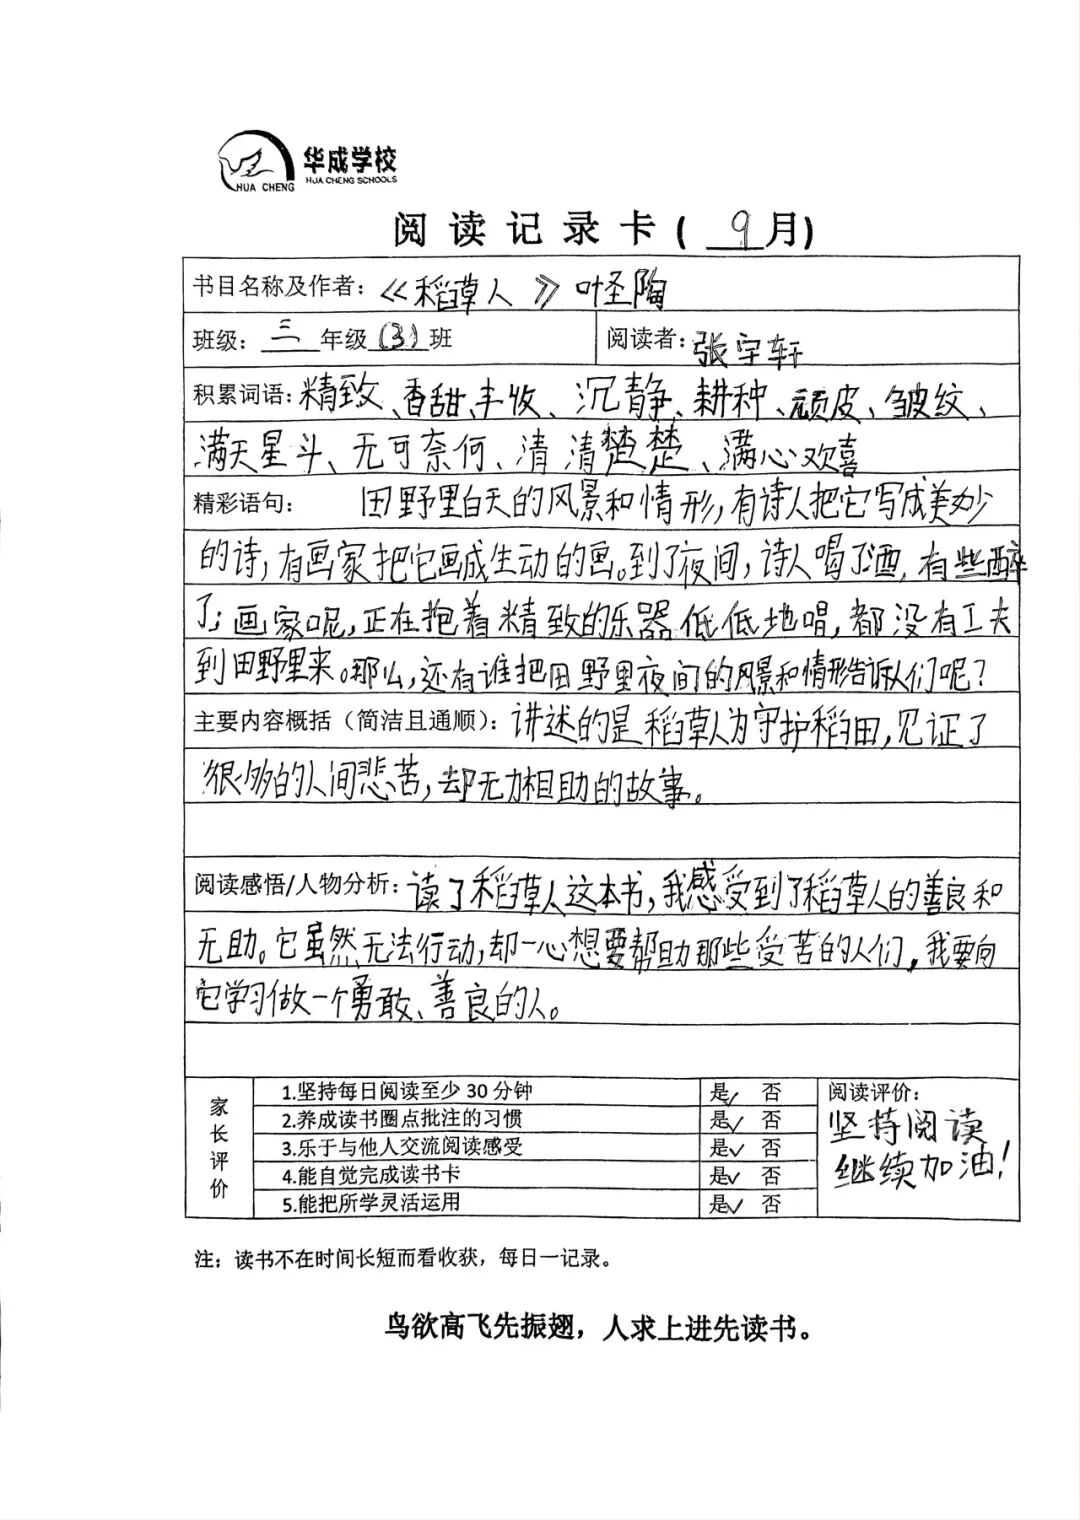 华成学校
HUA CHENG SCHOOLS
HUA CHENG
阅读记录卡（9月）
书目名称及作者：《稻草人》叶圣陶
班级：三年级（3）班 阅读者：张宇轩
积累词语：精致、香甜、丰收、沉静、耕种、顽皮、皱纹、
满天星斗、无可奈何、清清楚楚、满心欢喜
精彩语句： 田野里白天的风景和情形，有诗人把它写成美妙
的诗，有画家把它画成生动的画。到了夜间，诗人喝了酒，有些醉
了；画家呢，正在抱着精致的乐器低低地唱，都没有工夫
到田野里来。那么，还有谁把田野里夜间的风景和情形告诉人们呢？
主要内容概括（简洁且通顺）：讲述的是稻草人为守护稻田，见证了
很多的人间悲苦，却无力相助的故事。
阅读感悟/人物分析：读了稻草人这本书，我感受到了稻草人的善良和
无助。它虽然无法行动，却一心想要帮助那些受苦的人们，我要向
它学习做一个勇敢、善良的人。
家长评价
1.坚持每日阅读至少30分钟 是✓ 否
2.养成读书圈点批注的习惯 是✓ 否
3.乐于与他人交流阅读感受 是✓ 否
4.能自觉完成读书卡 是✓ 否
5.能把所学灵活运用 是✓ 否
阅读评价：
坚持阅读
继续加油！
注：读书不在时间长短而看收获，每日一记录。
鸟欲高飞先振翅，人求上进先读书。